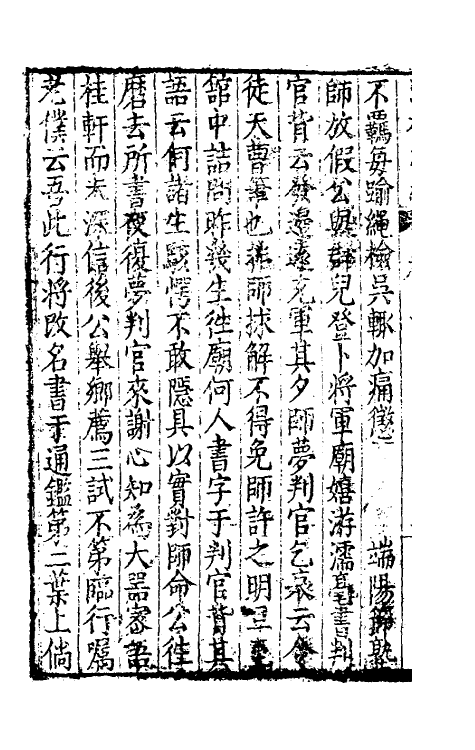 不羈每踰繩檢吳輒加痛懲 端陽節塾
師放假公與群兒登卜將軍廟嬉游濡毫書判
官背云發邊遠充軍其夕師夢判官乞哀云
徒天曹筆也非師救解不得免師許之明
舘中詰問昨幾生徃廟何人書字于判官背其
語云何諸生駭愕不敢隱具以實對師命公徃
磨去所書夜復夢判官來謝心知為大器密語
桂軒而未深信後公舉鄉薦三試不第臨行囑
老僕云吾此行將改名書于通鑑第二葉上倘